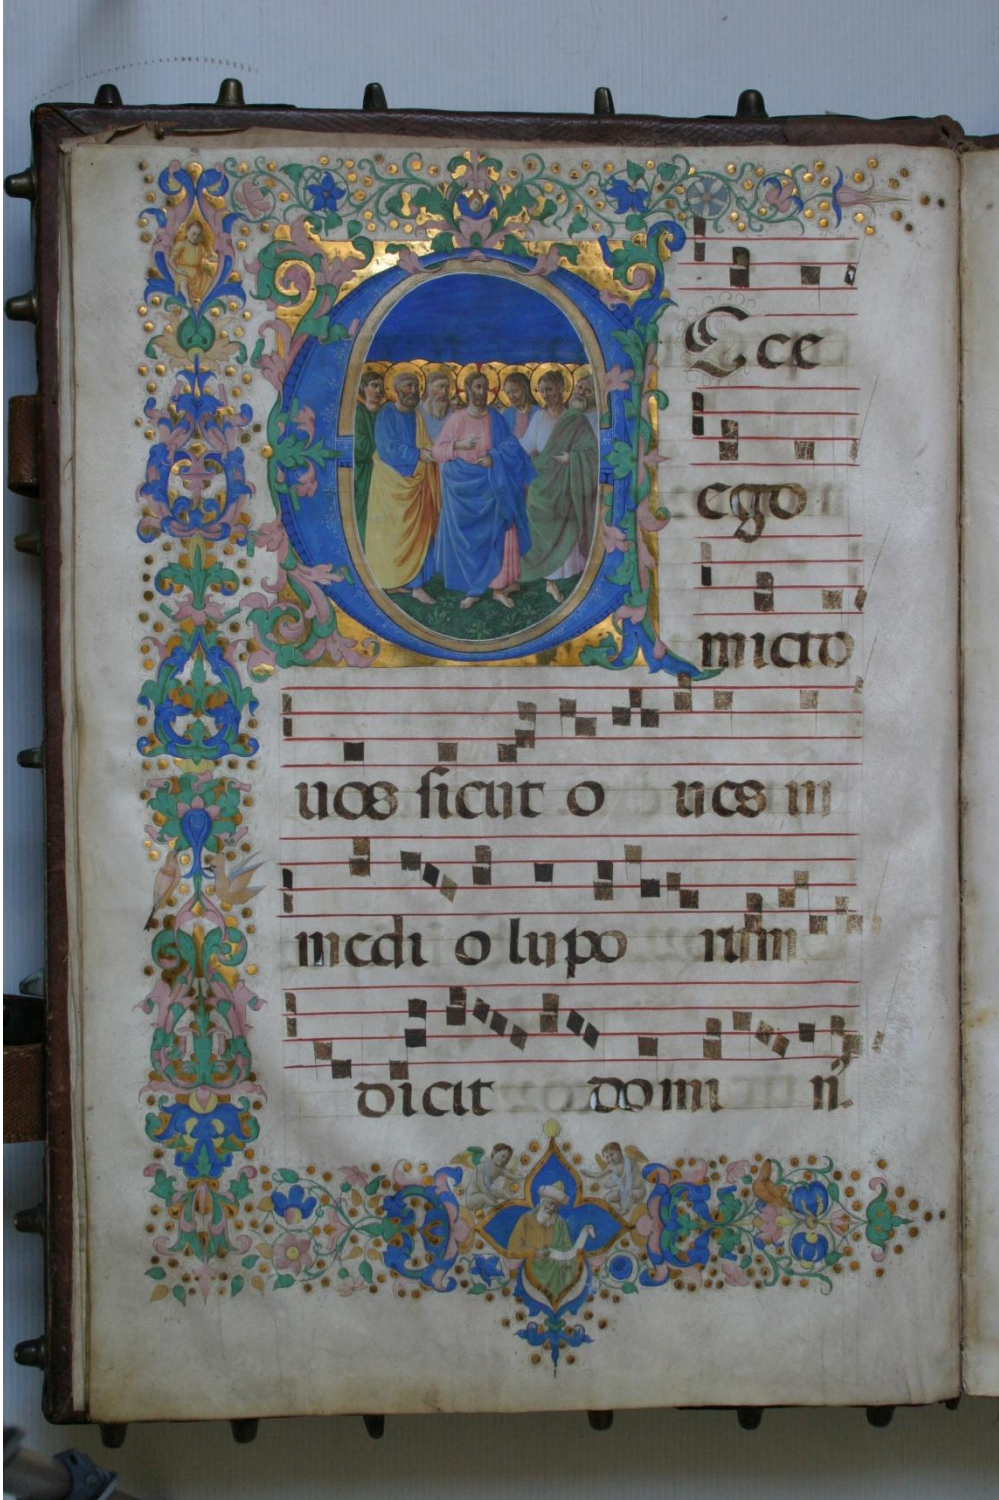 E Cce
ego
micto
uos sicut o ues in
medi o lupo rum
dicit domi n̄.